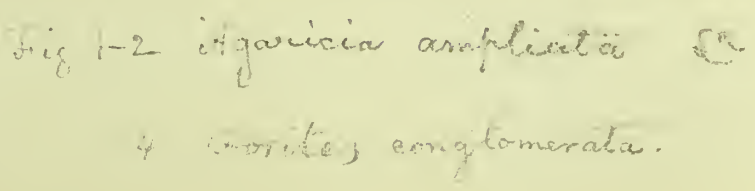 Fig 1-2 Agaricia ampliata
4 Porites conglomerata.